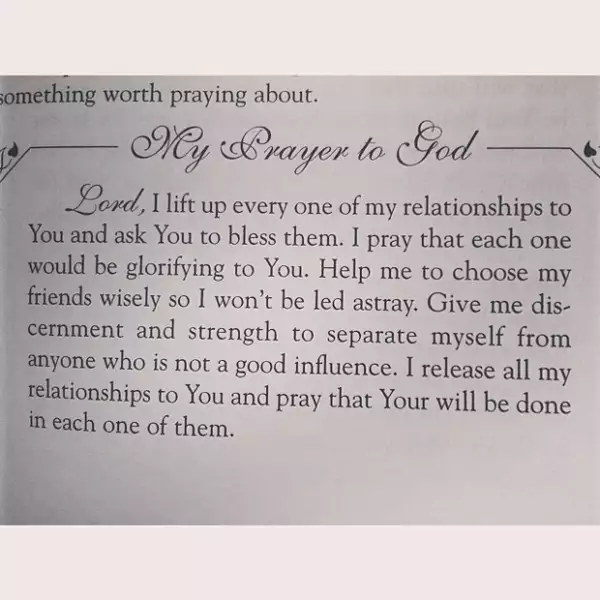 something worth praying about.
My Prayer to God
Lord, I lift up every one of my relationships to
You and ask You to bless them. I pray that each one
would be glorifying to You. Help me to choose my
friends wisely so I won't be led astray. Give me dis-
cernment and strength to separate myself from
anyone who is not a good influence. I release all my
relationships to You and pray that Your will be done
in each one of them.